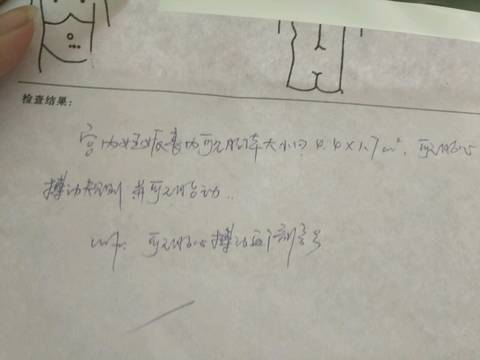 检查结果:
宫内妊娠囊内可见胎体大小约4.4×1.7cm². 可见胎心
搏动规则 并可见胎动..
可见胎心搏动